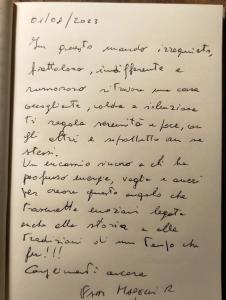 01/08/2023
In questo mondo irrequieto,
frettoloso, indifferente e
rumoroso ritrovare una casa
accogliente, calda e silenziosa
ti regala serenità e pace, con
gli altri e soprattutto con se
stessi.
Un encomio sincero a chi ha
profuso energie, voglia e
per creare questo angolo che
trasmette emozioni legate
anche alla storia e alle
tradizioni di un tempo che
fu!!!
Complimenti ancora